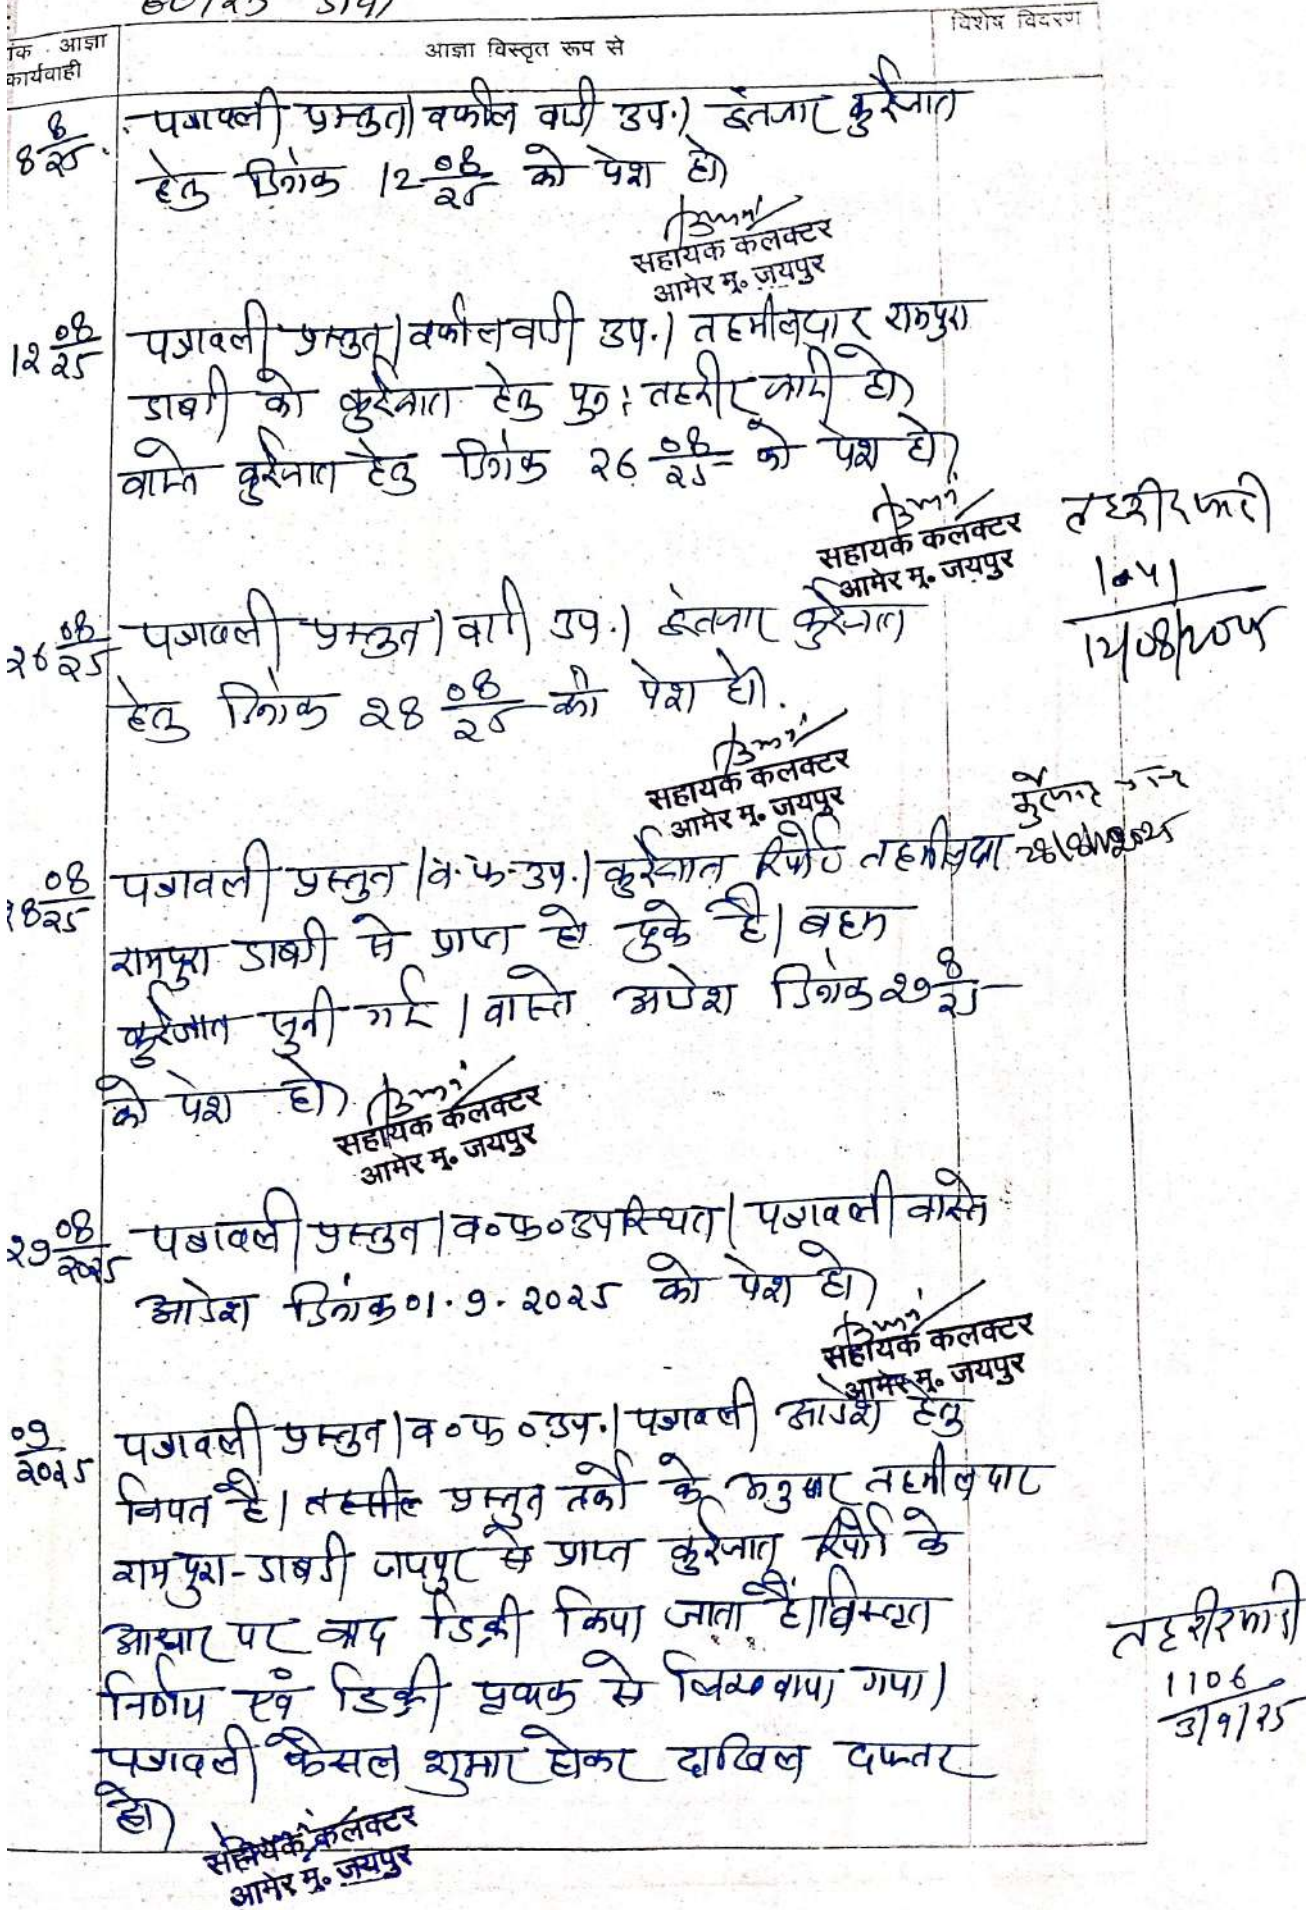 60/25
विशेष विवरण
ांक आज्ञा
कार्यवाही
आज्ञा विस्तृत रूप से
8 8/25
पत्रावली प्रस्तुत। वकील वादी उप.। इंतजार कुर्रेजात
हेतु दिनांक 12 08/25 को पेश हो।
सहायक कलक्टर
आमेर मु. जयपुर
12 08/25
पत्रावली प्रस्तुत। वकील वादी उप.। तहसीलदार रामपुरा
डाबडी को कुर्रेजात हेतु पुन: तहरीर जारी हो।
वास्ते कुर्रेजात हेतु दिनांक 26 08/25 को पेश हो।
सहायक कलक्टर
आमेर मु. जयपुर
तहरीर जारी
12/08/2025
26 08/25
पत्रावली प्रस्तुत। वादी उप.। इंतजार कुर्रेजात
हेतु दिनांक 28 08/25 को पेश हो.
सहायक कलक्टर
आमेर मु. जयपुर
28/8/2025
28 08/25
पत्रावली प्रस्तुत। व.फ.उप.। कुर्रेजात रिपोर्ट तहसीलदार
रामपुरा डाबडी से प्राप्त हो चुके है। बहस
कुर्रेजात सुनी गई। वास्ते आदेश दिनांक 29 8/25
को पेश हो।
सहायक कलक्टर
आमेर मु. जयपुर
29 08/2025
पत्रावली प्रस्तुत। व०फ०उपस्थित। पत्रावली वास्ते
आदेश दिनांक 01.9.2025 को पेश हो।
सहायक कलक्टर
आमेर मु. जयपुर
09/2025
पत्रावली प्रस्तुत। व०फ०उप.। पत्रावली आदेश हेतु
नियत है। प्रस्तुत तर्को के अनुसार तहसीलदार
रामपुरा-डाबडी जयपुर से प्राप्त कुर्रेजात रिपोर्ट के
आधार पर वाद डिक्री किया जाता है। विस्तृत
निर्णय एवं डिक्री पृथक से लिखवाया गया।
पत्रावली फैसल शुमार होकर दाखिल दफ्तर
हो।
तहरीर जारी
1106
3/9/25
सहायक कलक्टर
आमेर मु. जयपुर